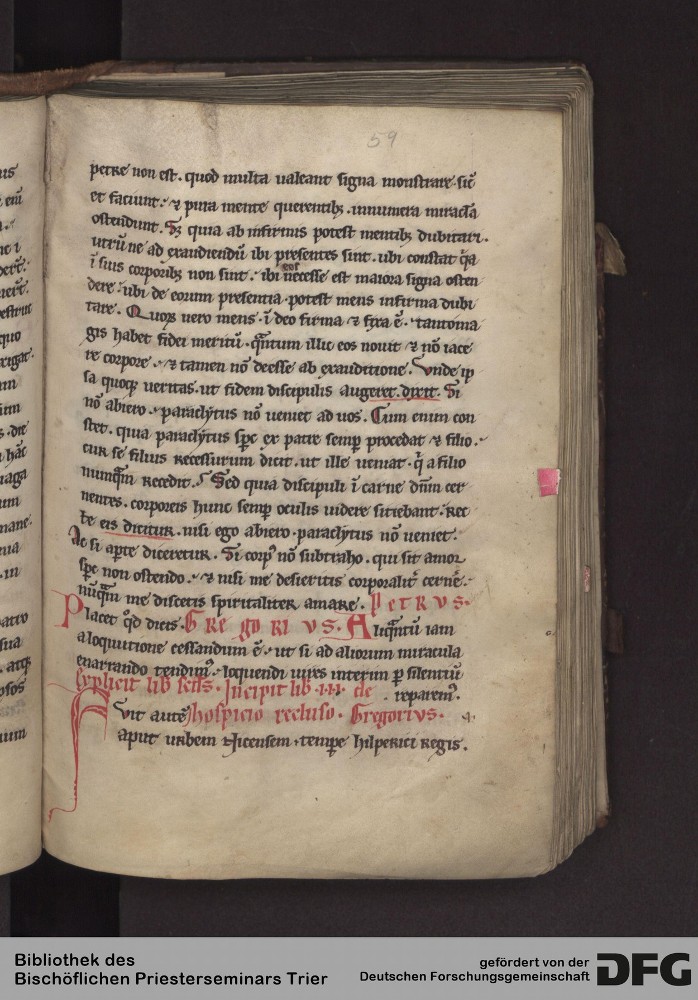 59
petre non est. quod multa ualeant signa monstrare. sic̄
et faciunt. ⁊ pura mente querentib;. innumera miracl̄a
ostendunt. Sꝫ quia ab infirmis potest mentib; dubitari.
utrū ne ad exaudiendū ibi presentes sint. ubi constat q̄a
ī suis corporib; non sint. ibi eos necesse est maiora signa osten
dere. ubi de eorum presentia. potest mens infirma dubi
tare. Quoꝝ uero mens. ī deo firma ⁊ fixa ē. tanto ma
gis habet fidei meritū. q̄ntum illic eos nouit ⁊ nō iace
re corpore. ⁊ tamen nō deesse ab exauditione. Vnde ip
sa quoqꝫ ueritas. ut fidem discipulis augeret. dixit. Si
nō abiero. paraclytus nō ueniet ad uos. Cum enim con
stet. quia paraclytus sp̄c ex patre semp̄ procedat ⁊ filio.
cur se filius recessurum dicit. ut ille ueniat. q̄ a filio
nunq̄m recedit. Sed quia discipuli ī carne dn̄m cer
nentes. corporeis hunc semp̄ oculis uidere sitiebant. rec
te eis dicitur. nisi ego abiero. paraclytus nō ueniet.
Ac si ap̄te diceretur. Si corp᷒ nō subtraho. qui sit amor
sp̄c non ostendo. ⁊ nisi me desieritis corporalit̄ cernē.
nūq̄m me discetis spiritaliter amare. PETRVS.
Placet q̄d dicis. GREGORIVS. Aliq̄ntū iam
a loquutione cessandum ē. ut si ad aliorum miracula
enarrando tendim᷒. loquendi uires interim p̄ silentiū
Explicit lib scd̄s. Incipit lib .III. de . reparem᷒.
Fvit autē hospicio recluso. Gregorivs.
aput urbem Nicensem. tempe hilperici regis.
Bibliothek des
Bischöflichen Priesterseminars Trier
gefördert von der
Deutschen Forschungsgemeinschaft
DFG